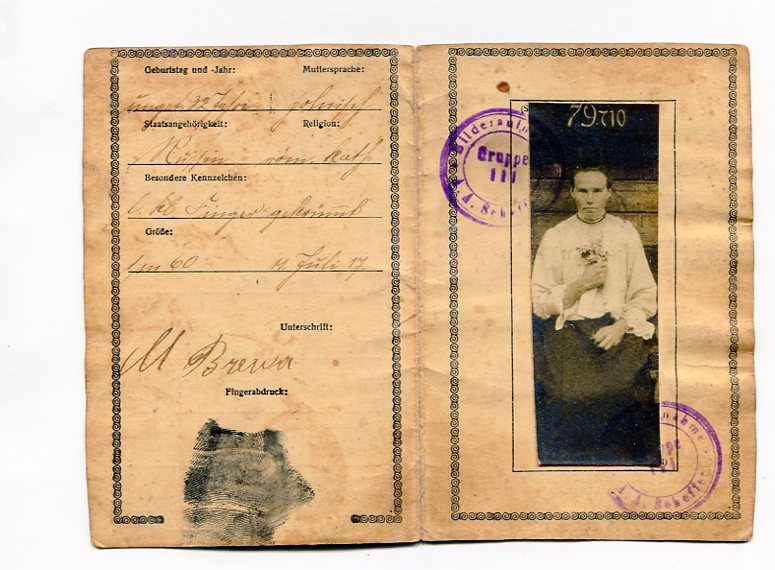 Geburtstag und -Jahr: Muttersprache:
ungef. 32 Jahre polnisch
Staatsangehörigkeit: Religion:
Russin röm. kath
Besondere Kennzeichen:
l. kl. Finger gekrümmt
Größe:
1 m 60 4. Juli 17.
Unterschrift:
M Brewa
Fingerabdruck:
79710
Gruppe
III